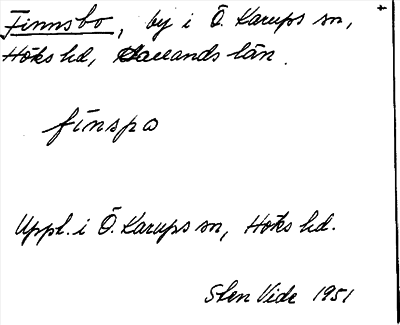 Finnsbo, by i Ö. Karups sn,
Höks hd, Hallands län.
finspo
Uppl. i Ö. Karups sn, Höks hd.
Sten Vide 1951